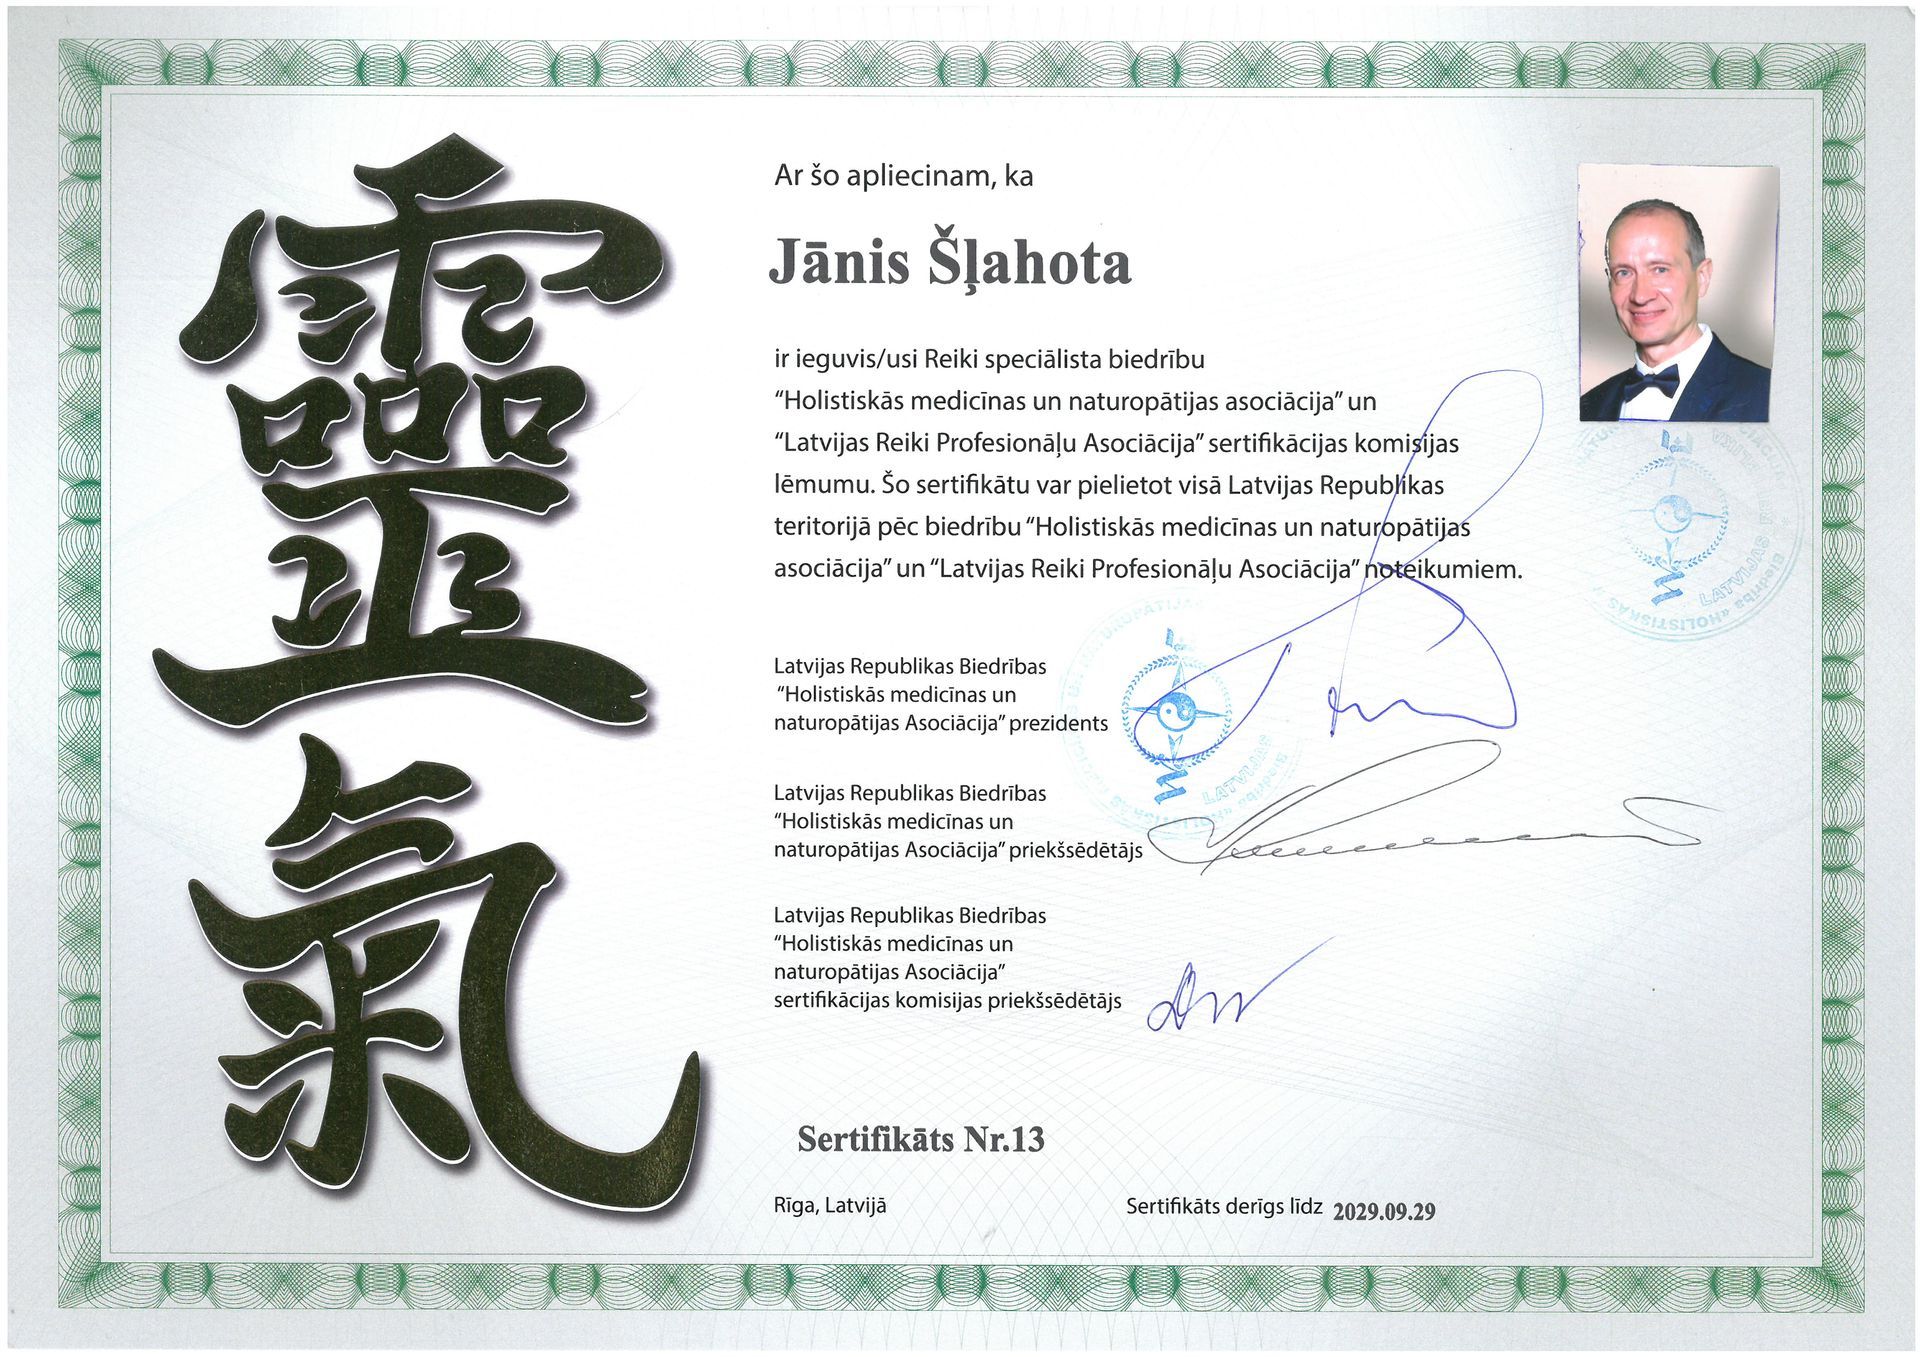 靈
氣
Ar šo apliecinam, ka
Jānis Šļahota
ir ieguvis/usi Reiki speciālista biedrību
“Holistiskās medicīnas un naturopātijas asociācija” un
“Latvijas Reiki Profesionāļu Asociācija” sertifikācijas komisijas
lēmumu. Šo sertifikātu var pielietot visā Latvijas Republikas
teritorijā pēc biedrību “Holistiskās medicīnas un naturopātijas
asociācija” un “Latvijas Reiki Profesionāļu Asociācija” noteikumiem.
Latvijas Republikas Biedrības
“Holistiskās medicīnas un
naturopātijas Asociācija” prezidents
Latvijas Republikas Biedrības
“Holistiskās medicīnas un
naturopātijas Asociācija” priekšsēdētājs
Latvijas Republikas Biedrības
“Holistiskās medicīnas un
naturopātijas Asociācija”
sertifikācijas komisijas priekšsēdētājs
Sertifikāts Nr.13
Rīga, Latvijā
Sertifikāts derīgs līdz 2029.09.29